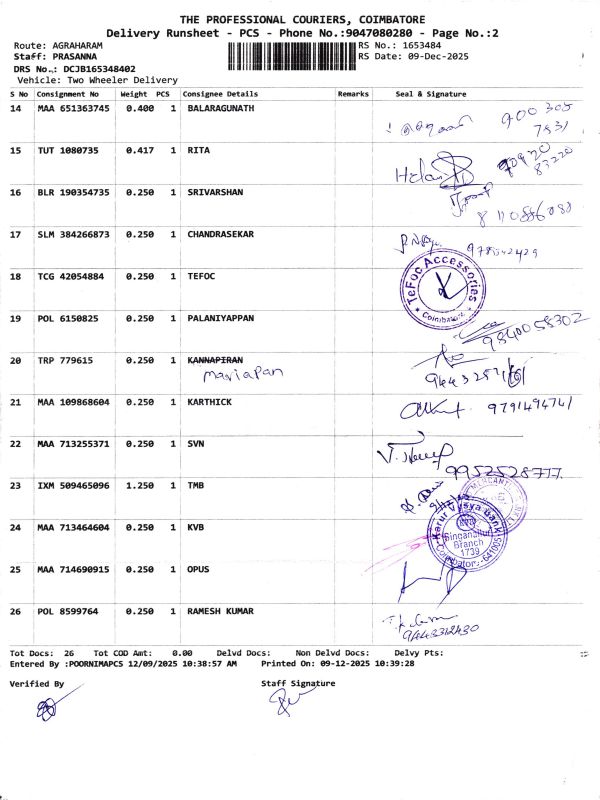 THE PROFESSIONAL COURIERS, COIMBATORE
Delivery Runsheet - PCS - Phone No.:9047080280 - Page No.:2
Route: AGRAHARAM RS No.: 1653484
Staff: PRASANNA RS Date: 09-Dec-2025
DRS No.: DCJB165348402
Vehicle: Two Wheeler Delivery
S No Consignment No Weight PCS Consignee Details Remarks Seal & Signature
14 MAA 651363745 0.400 1 BALARAGUNATH
15 TUT 1080735 0.417 1 RITA
16 BLR 190354735 0.250 1 SRIVARSHAN
17 SLM 384266873 0.250 1 CHANDRASEKAR
18 TCG 42054884 0.250 1 TEFOC
TeFoc Accessories
Coimbatore
19 POL 6150825 0.250 1 PALANIYAPPAN 9840058302
20 TRP 779615 0.250 1 KANNAPIRAN
Mariapan
21 MAA 109868604 0.250 1 KARTHICK 9791494741
22 MAA 713255371 0.250 1 SVN
9952528777
23 IXM 509465096 1.250 1 TMB
24 MAA 713464604 0.250 1 KVB
Karur Vysya Bank
Singanallur
Branch
1739
Coimbatore - 641005
25 MAA 714690915 0.250 1 OPUS
26 POL 8599764 0.250 1 RAMESH KUMAR
9443312430
Tot Docs: 26 Tot COD Amt: 0.00 Delvd Docs: Non Delvd Docs: Delvy Pts:
Entered By :POORNIMAPCS 12/09/2025 10:38:57 AM Printed On: 09-12-2025 10:39:28
Verified By Staff Signature